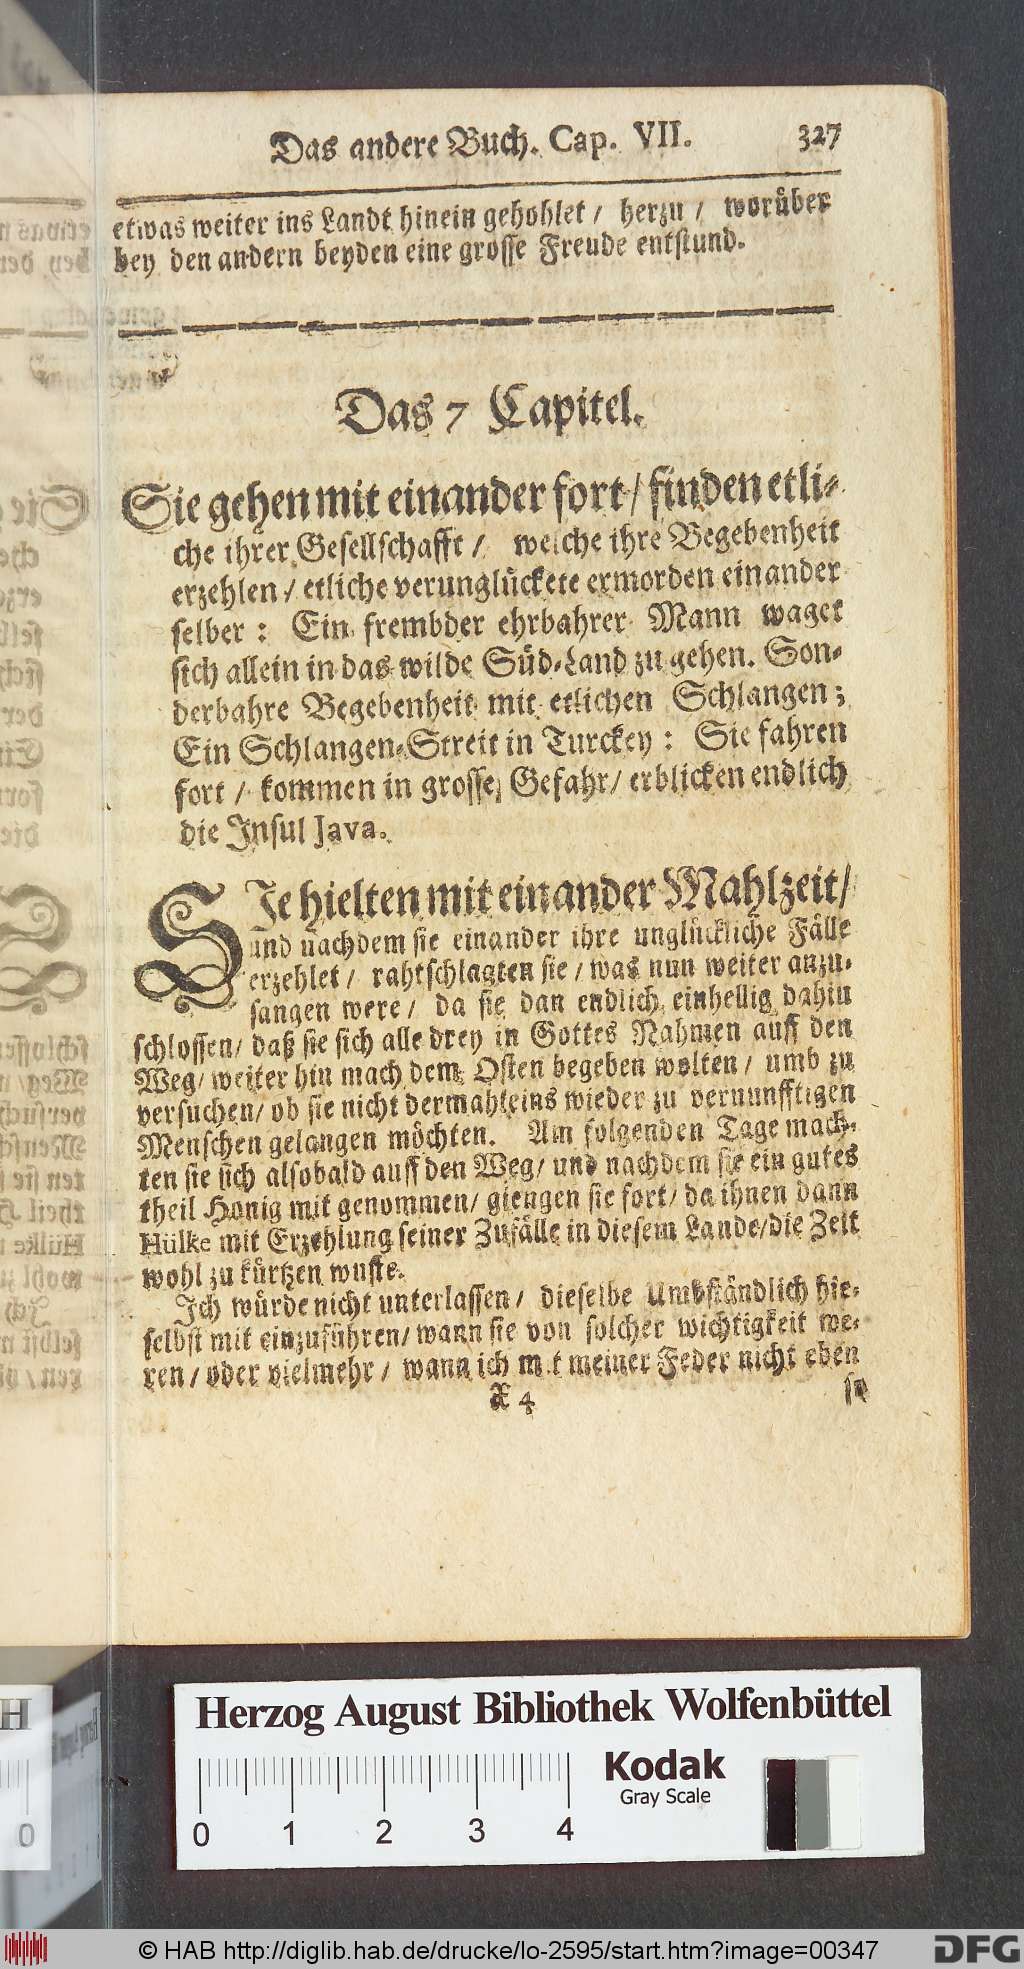 Das andere Buch. Cap. VII. 327
etwas weiter ins Landt hinein gehohlet / herzu / worüber
bey den andern beyden eine grosse Freude entstund.
Das 7 Capitel.
Sie gehen mit einander fort / finden etli-
che ihrer Gesellschafft / welche ihre Begebenheit
erzehlen / etliche verunglückete ermorden einander
selber : Ein frembder ehrbahrer Mann waget
sich allein in das wilde Süd-Land zu gehen. Son-
derbahre Begebenheit mit etlichen Schlangen ;
Ein Schlangen-Streit in Turckey : Sie fahren
fort / kommen in grosse Gefahr / erblicken endlich
die Insul Java.
SIe hielten mit einander Mahlzeit /
und nachdem sie einander ihre unglückliche Fälle
erzehlet / rahtschlagten sie / was nun weiter anzu-
fangen were / da sie dan endlich einhellig dahin
schlossen / daß sie sich alle drey in Gottes Nahmen auff den
Weg / weiter hin mach dem Osten begeben wolten / umb zu
versuchen / ob sie nicht dermahleins wieder zu vernunfftigen
Menschen gelangen möchten. Am folgenden Tage mach-
ten sie sich alsobald auff den Weg / und nachdem sie ein gutes
theil Honig mit genommen / giengen sie fort / da ihnen dann
Hülke mit Erzehlung seiner Zufälle in diesem Lande / die Zeit
wohl zu kürtzen wuste.
Ich würde nicht unterlassen / dieselbe Umbständlich hie-
selbst mit einzuführen / wann sie von solcher wichtigkeit we-
ren / oder vielmehr / wann ich mit meiner Feder nicht eben
X 4 so
Herzog August Bibliothek Wolfenbüttel
Kodak
Gray Scale
0 1 2 3 4
© HAB http://diglib.hab.de/drucke/lo-2595/start.htm?image=00347 DFG